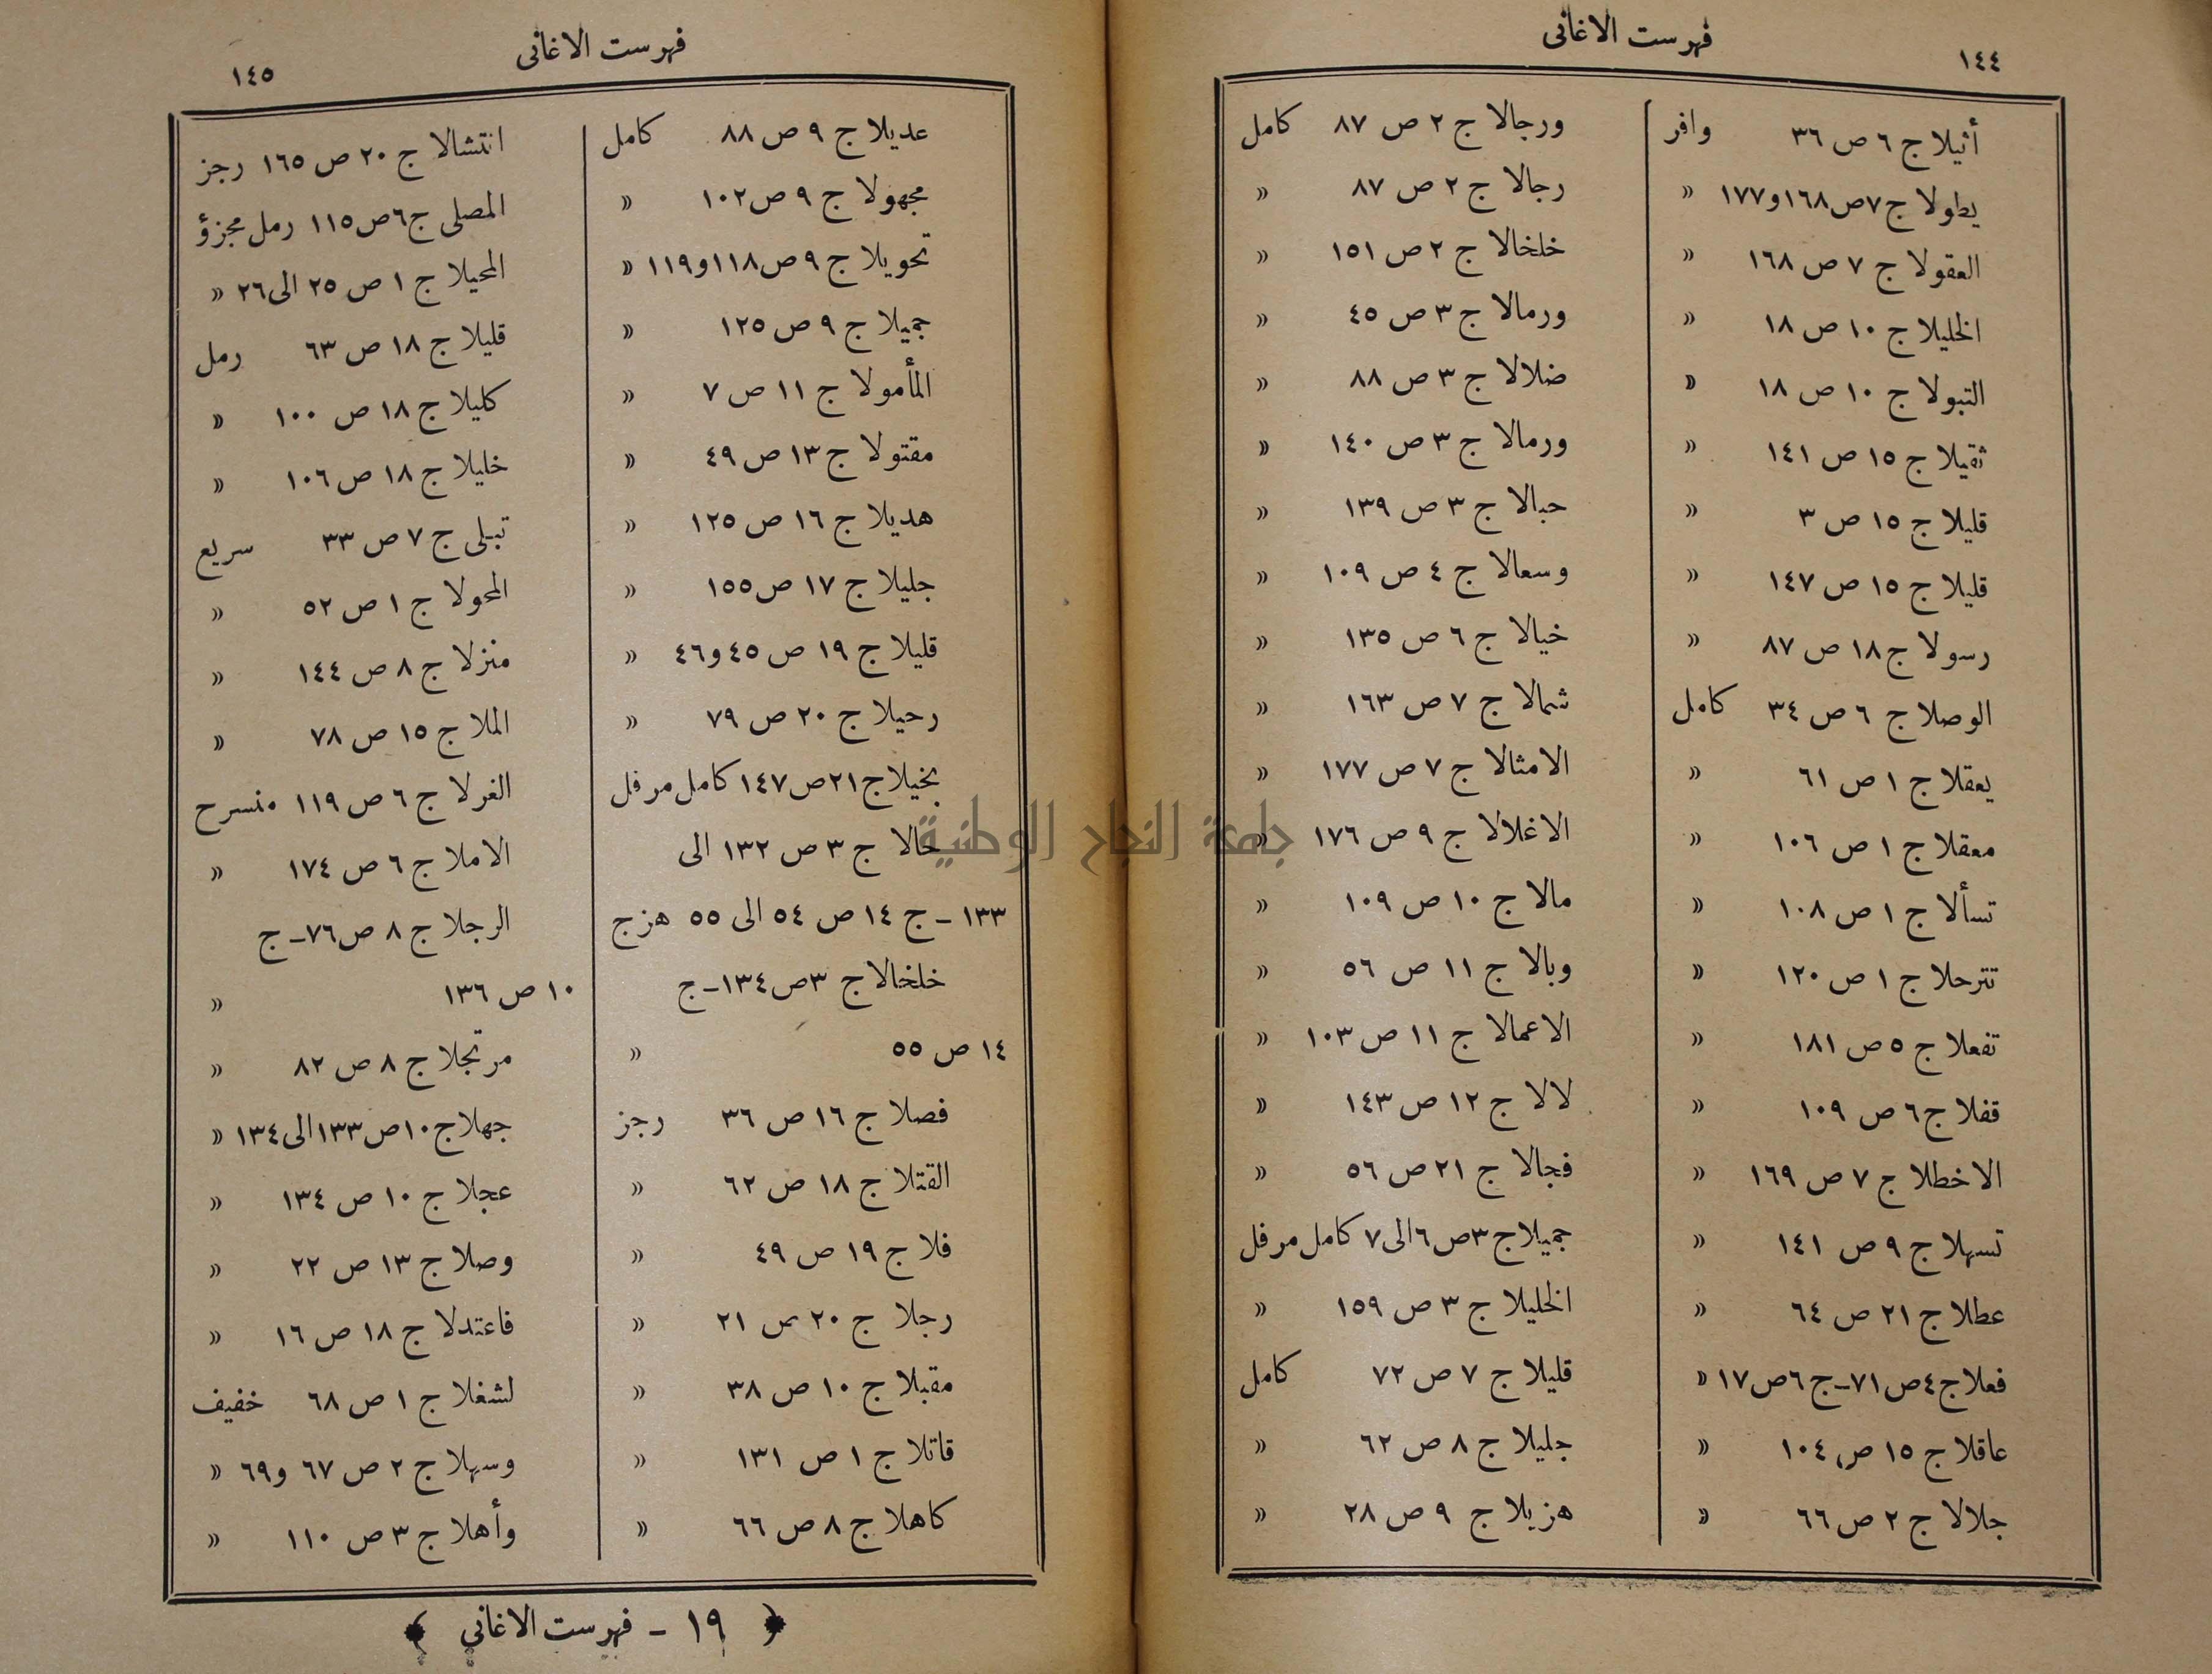 ١٤٤
فهرست الاغانى
أثيلا ج ٦ ص ٣٦ وافر
يطولا ج ٧ ص ١٦٨ و ١٧٧ »
العقولا ج ٧ ص ١٦٨ »
الخليلا ج ١٠ ص ١٨ »
التبولا ج ١٠ ص ١٨ »
ثقيلا ج ١٥ ص ١٤١ »
قليلا ج ١٥ ص ٣ »
قليلا ج ١٥ ص ١٤٧ »
رسولا ج ١٨ ص ٨٧ »
الوصلا ج ٦ ص ٣٤ كامل
يعقلا ج ١ ص ٦١ »
معقلا ج ١ ص ١٠٦ »
تسألا ج ١ ص ١٠٨ »
تترحلا ج ١ ص ١٢٠ »
تفعلا ج ٥ ص ١٨١ »
قفلا ج ٦ ص ١٠٩ »
الاخطلا ج ٧ ص ١٦٩ »
تسهلا ج ٩ ص ١٤١ »
عطلا ج ٢١ ص ٦٤ »
فعلا ج ٤ ص ٧١ ـ ج ٦ ص ١٧ »
عاقلا ج ١٥ ص ١٠٤ »
جلالا ج ٢ ص ٦٦ »
ورجالا ج ٢ ص ٨٧ كامل
رجالا ج ٢ ص ٨٧ »
خلخالا ج ٢ ص ١٥١ »
ورمالا ج ٣ ص ٤٥ »
ضلالا ج ٣ ص ٨٨ »
ورمالا ج ٣ ص ١٤٠ »
حبالا ج ٣ ص ١٣٩ »
وسعالا ج ٤ ص ١٠٩ »
خيالا ج ٦ ص ١٣٥ »
شمالا ج ٧ ص ١٦٣ »
الامثالا ج ٧ ص ١٧٧ »
الاغلالا ج ٩ ص ١٧٦ »
مالا ج ١٠ ص ١٠٩ »
وبالا ج ١١ ص ٥٦ »
الاعمالا ج ١١ ص ١٠٣ »
لالا ج ١٢ ص ١٤٣ »
فجالا ج ٢١ ص ٥٦ »
جميلا ج ٣ ص ٦ الى ٧ كامل مرفل
الخليلا ج ٣ ص ١٥٩ »
قليلا ج ٧ ص ٧٢ كامل
جليلا ج ٨ ص ٦٢ »
هزيلا ج ٩ ص ٢٨ »
فهرست الاغانى
١٤٥
عديلا ج ٩ ص ٨٨ كامل
مجهولا ج ٩ ص ١٠٢ »
تحويلا ج ٩ ص ١١٨ و ١١٩ »
جميلا ج ٩ ص ١٢٥ »
المأمولا ج ١١ ص ٧ »
مقتولا ج ١٣ ص ٤٩ »
هديلا ج ١٦ ص ١٢٥ »
جليلا ج ١٧ ص ١٥٥ »
قليلا ج ١٩ ص ٤٥ و ٤٦ »
رحيلا ج ٢٠ ص ٧٩ »
بخيلا ج ٢١ ص ١٤٧ كامل مرفل
حالا ج ٣ ص ١٣٢ الى
١٣٣ ـ ج ١٤ ص ٥٤ الى ٥٥ هزج
خلخالا ج ٣ ص ١٣٤ ـ ج
١٤ ص ٥٥ »
فصلا ج ١٦ ص ٣٦ رجز
القتلا ج ١٨ ص ٦٢ »
فلا ج ١٩ ص ٤٩ »
رجلا ج ٢٠ ص ٢١ »
مقبلا ج ١٠ ص ٣٨ »
قاتلا ج ١ ص ١٣١ »
كاهلا ج ٨ ص ٦٦ »
انتشالا ج ٢٠ ص ١٦٥ رجز
المصلى ج ٦ ص ١١٥ رمل مجزؤ
المحيلا ج ١ ص ٢٥ الى ٢٦ »
قليلا ج ١٨ ص ٦٣ رمل
كليلا ج ١٨ ص ١٠٠ »
خليلا ج ١٨ ص ١٠٦ »
تبلى ج ٧ ص ٣٣ سريع
المحولا ج ١ ص ٥٢ »
منزلا ج ٨ ص ١٤٤ »
الملا ج ١٥ ص ٧٨ »
الغرلا ج ٦ ص ١١٩ منسرح
الاملا ج ٦ ص ١٧٤ »
الرجلا ج ٨ ص ٧٦ ـ ج
١٠ ص ١٣٦ »
مرتجلا ج ٨ ص ٨٢ »
جهلا ج ١٠ ص ١٣٣ الى ١٣٤ »
عجلا ج ١٠ ص ١٣٤ »
وصلا ج ١٣ ص ٢٢ »
فاعتدلا ج ١٨ ص ١٦ »
لشغلا ج ١ ص ٦٨ خفيف
وسهلا ج ٢ ص ٦٧ و ٦٩ »
وأهلا ج ٣ ص ١١٠ »
﴿ ١٩ ـ فهرست الاغاني ﴾
جامعة النجاح الوطنية